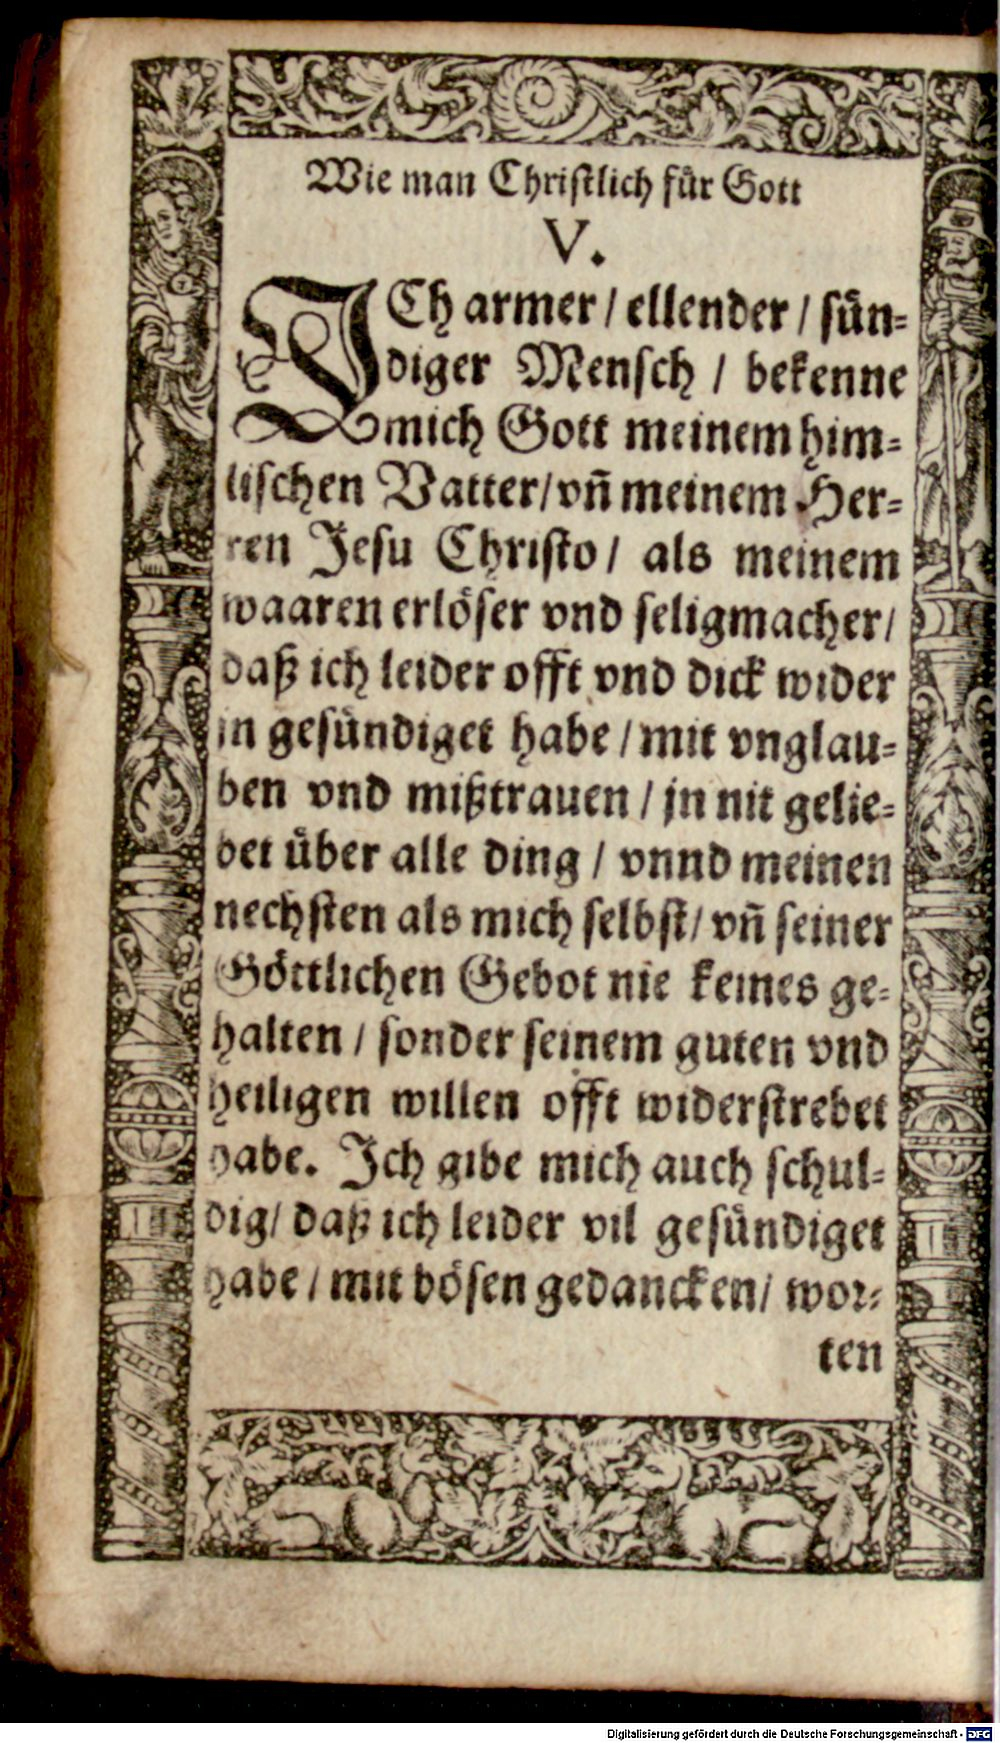 Wie man Christlich für Gott
V.
ICh armer / ellender / sün-
diger Mensch / bekenne
mich Gott meinem him-
lischen Vatter / vñ meinem Her-
ren Jesu Christo / als meinem
waaren erlöser vnd seligmacher /
daß ich leider offt vnd dick wider
jn gesündiget habe / mit vnglau-
ben vnd mißtrauen / jn nit gelie-
bet über alle ding / vnnd meinen
nechsten als mich selbst / vñ seiner
Göttlichen Gebot nie keines ge-
halten / sonder seinem guten vnd
heiligen willen offt widerstrebet
habe. Ich gibe mich auch schul-
dig / daß ich leider vil gesündiget
habe / mit bösen gedancken / wor-
ten
Digitalisierung gefördert durch die Deutsche Forschungsgemeinschaft - DFG